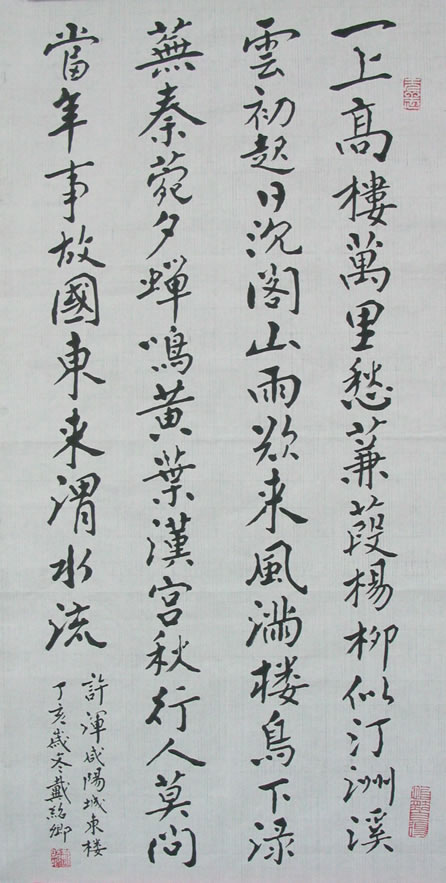 一上高樓萬里愁蒹葭楊柳似汀洲溪
雲初起日沉閣山雨欲来風満楼鳥下渌
蕪秦菀夕蟬鳴黃葉漢宮秋行人莫问
當年事故國東来渭水流
許渾咸陽城東楼
丁亥歲冬戴紹卿